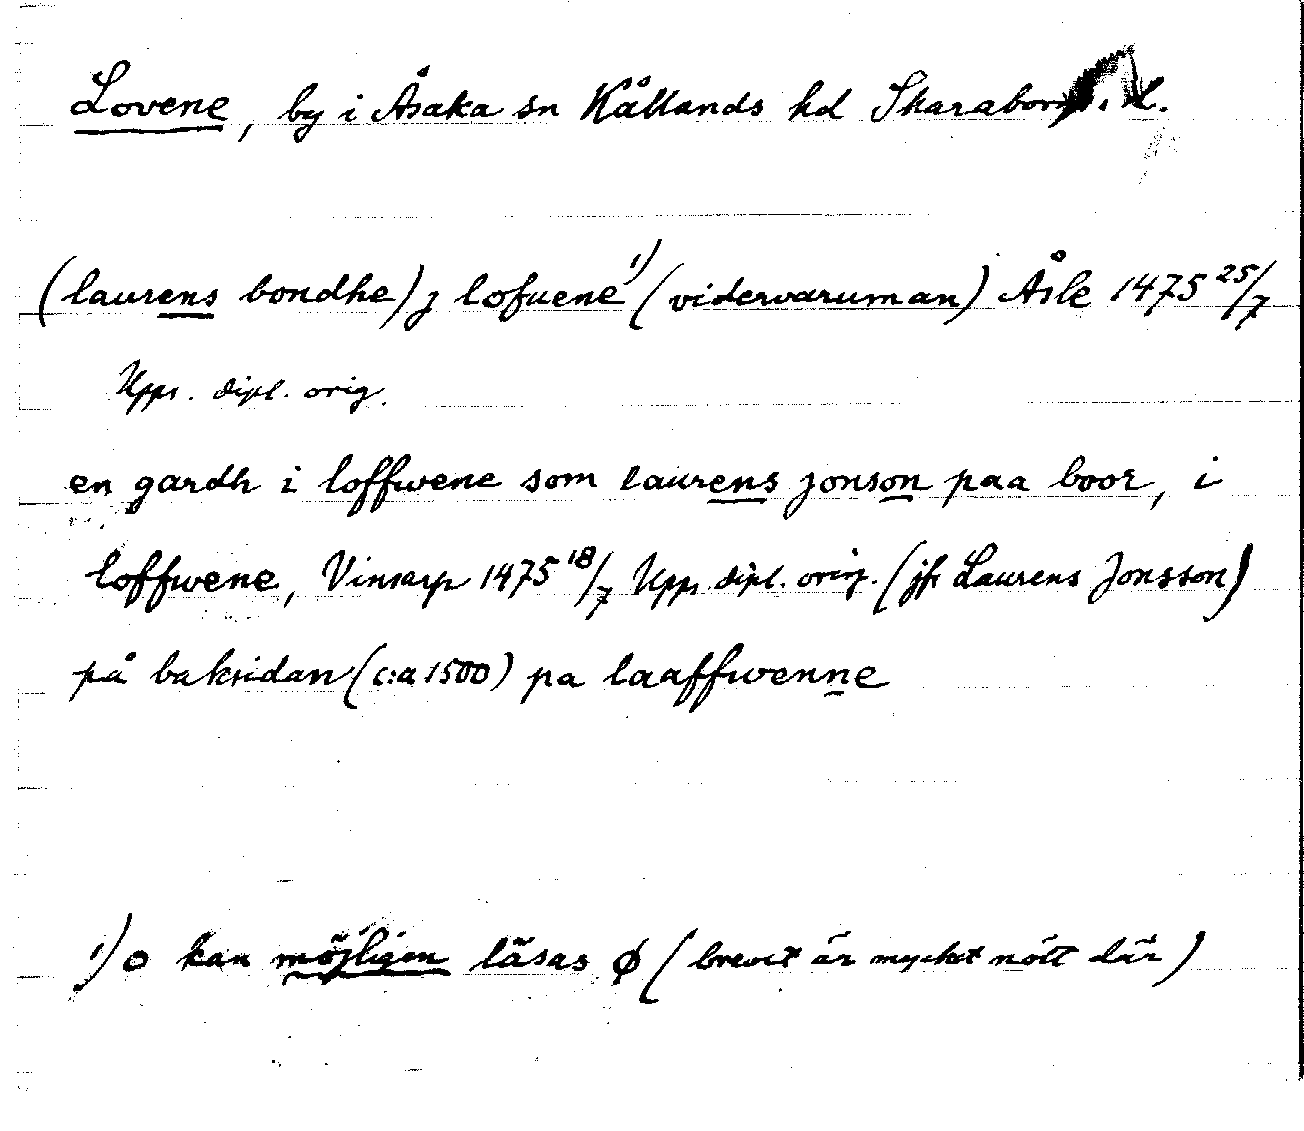 Lovene, by i Åsaka sn Kållands hd Skaraborgs l.
(laurens bondhe) j lofuene¹⁾ (vidervaruman) Åsle 1475 25/7
Upps. dipl. orig.
en gardh i loffwene som laurens jonson paa boor, i
loffwene, Vinsarp 1475 18/7 Upps. dipl. orig. (jfr Laurens Jonsson)
på baksidan (c:a 1500) pa laaffwenne
1) o kan möjligen läsas ø (brevet är mycket nött där)